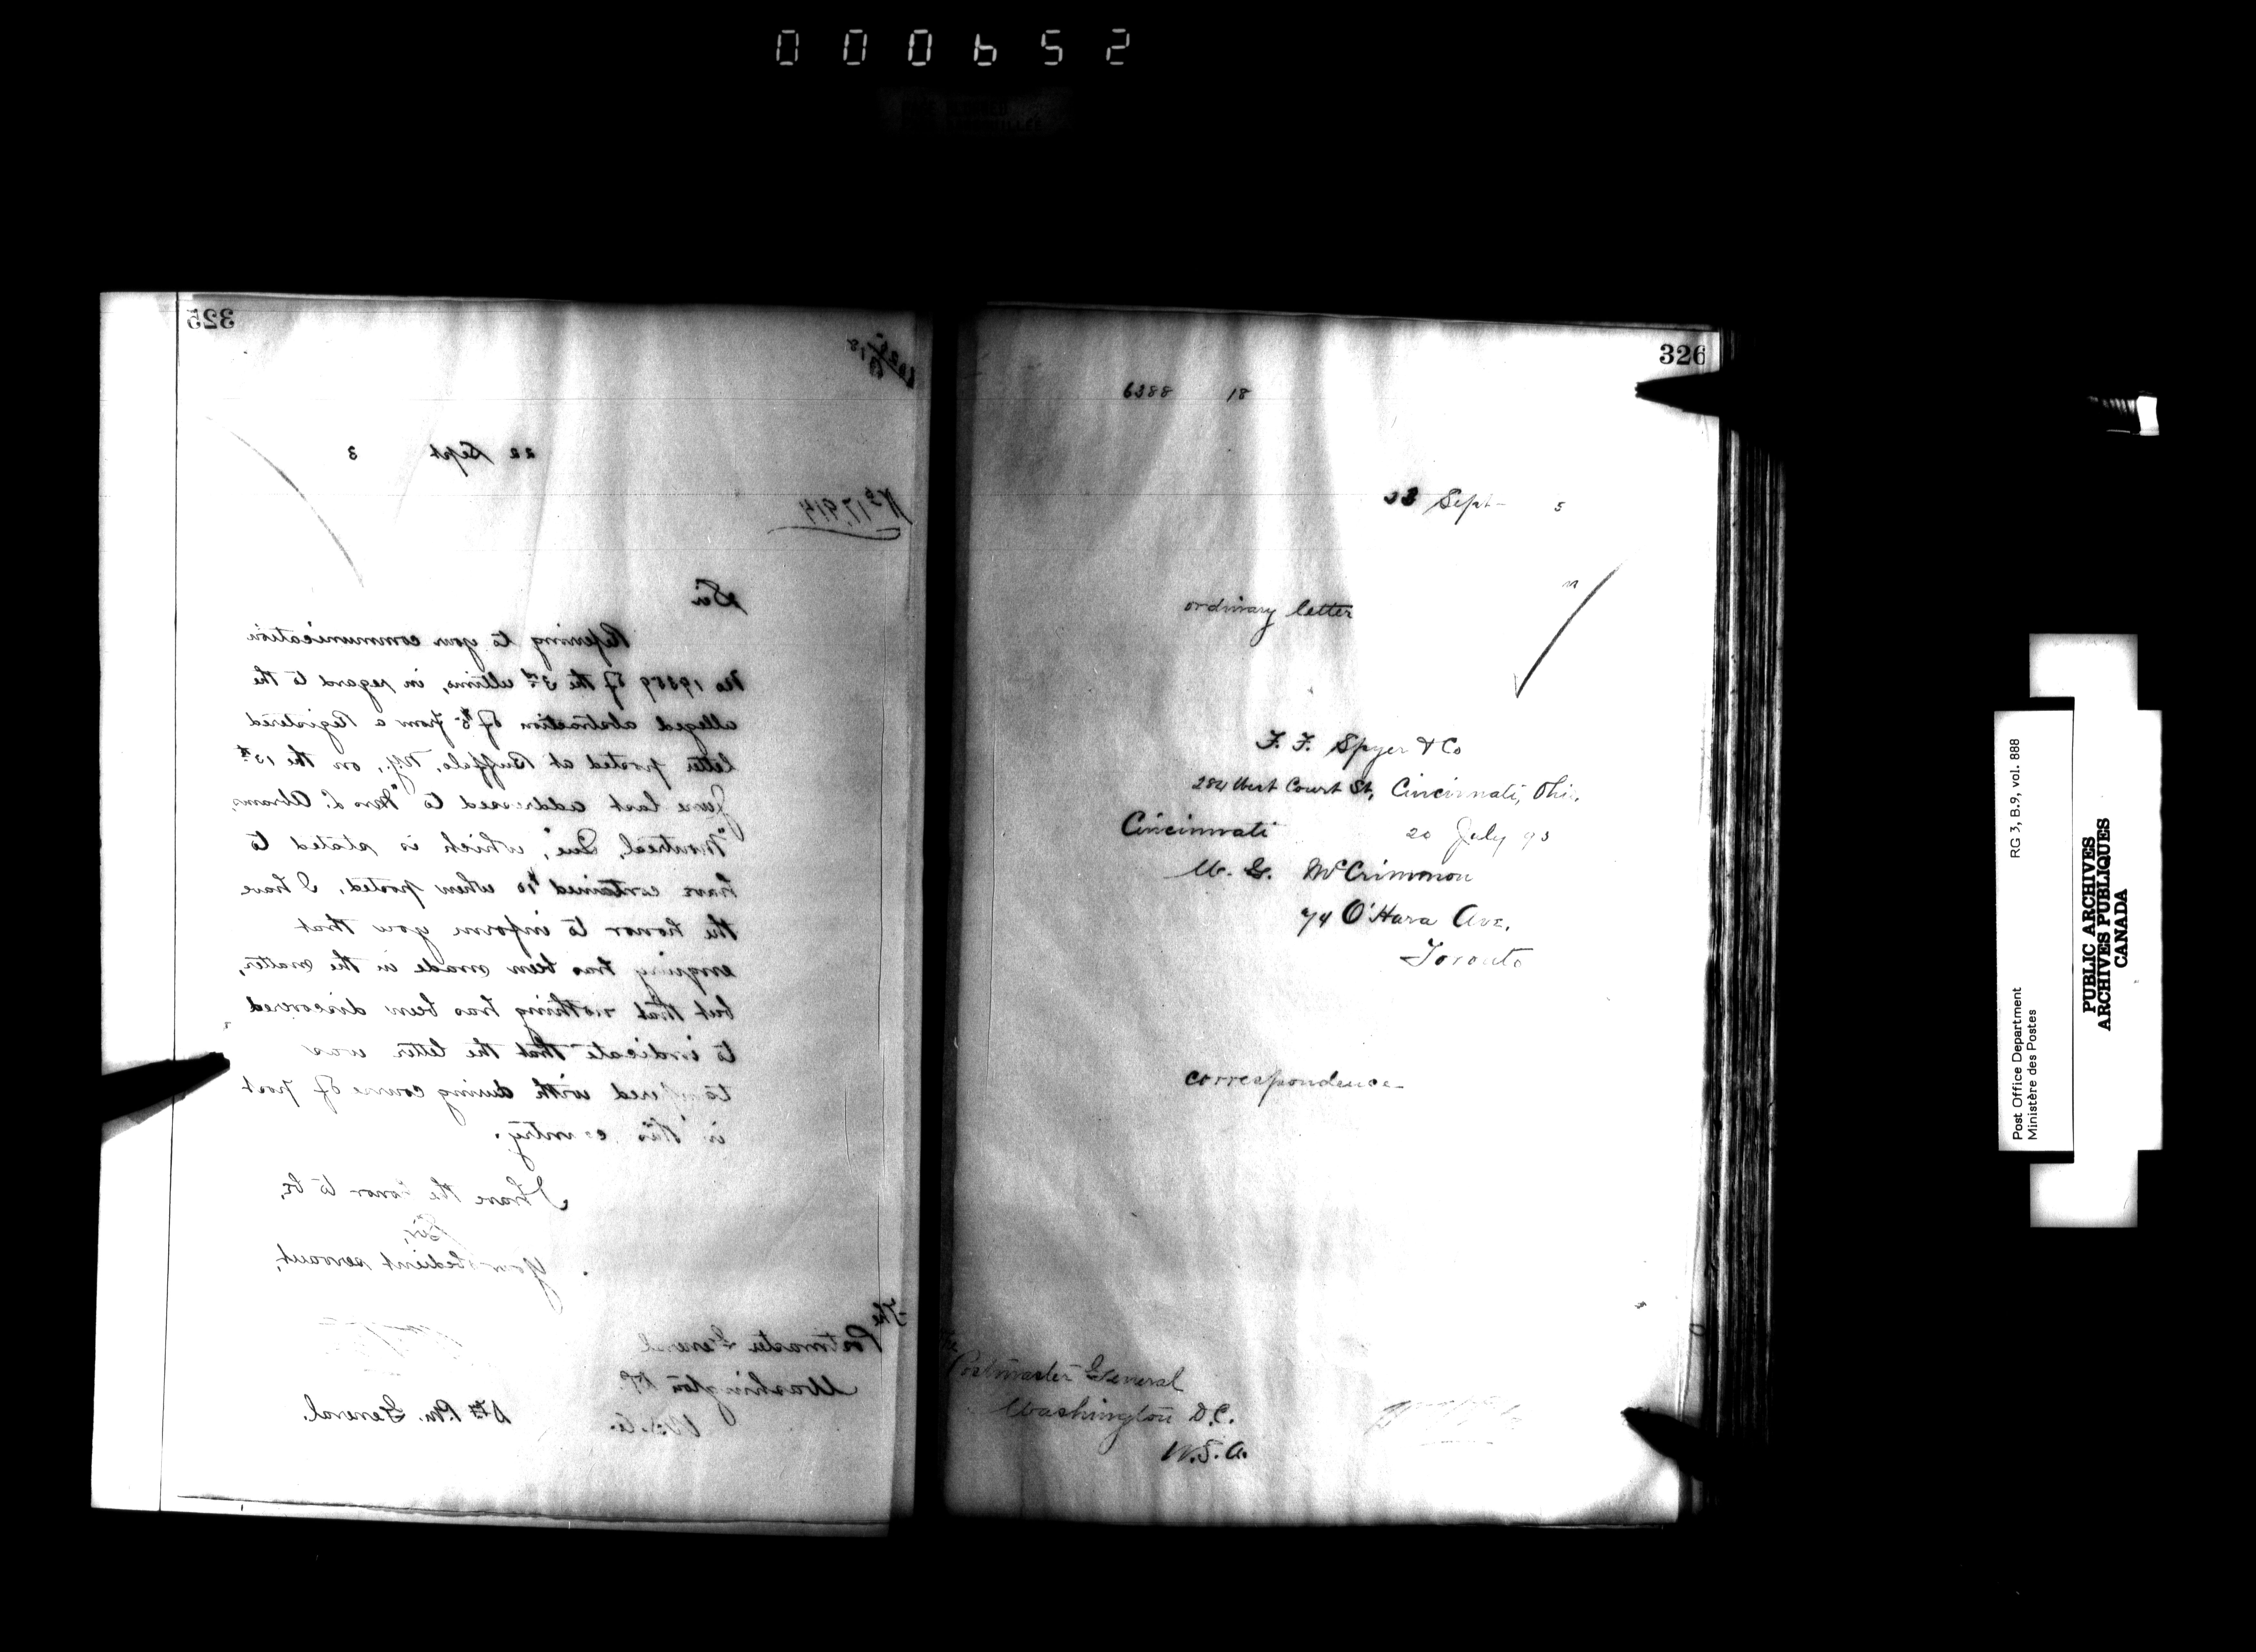 000652
325
22 Sept 3
No 17,914
Sir
Referring to your communication
No 19859 of the 3rd ultimo, in regard to the
alleged abstraction of $5 from a Registered
letter posted at Buffalo, N.Y., on the 13th
June last addressed to "Mrs L. Abrams,
Montreal, Que", which is stated to
have contained $10 when posted, I have
the honor to inform you that
enquiry has been made in the matter,
but that nothing has been discovered
to indicate that the letter was
tampered with during course of post
in this country.
I have the honor to be,
Sir,
Your obedient servant,
The
Postmaster General
Washington D.C.
U.S.A.
Dty P.M. General.
326
6388 18
23 Sept
ordinary letter
F. F. Spyer & Co
284 West Court St, Cincinnati, Ohio.
Cincinnati 20 July 93
W. G. McCrimmon
74 O'Hara Ave.
Toronto
correspondence
Postmaster General
Washington D.C.
U.S.A.
Post Office Department
Ministère des Postes
RG 3, B.9, vol. 888
PUBLIC ARCHIVES
ARCHIVES PUBLIQUES
CANADA